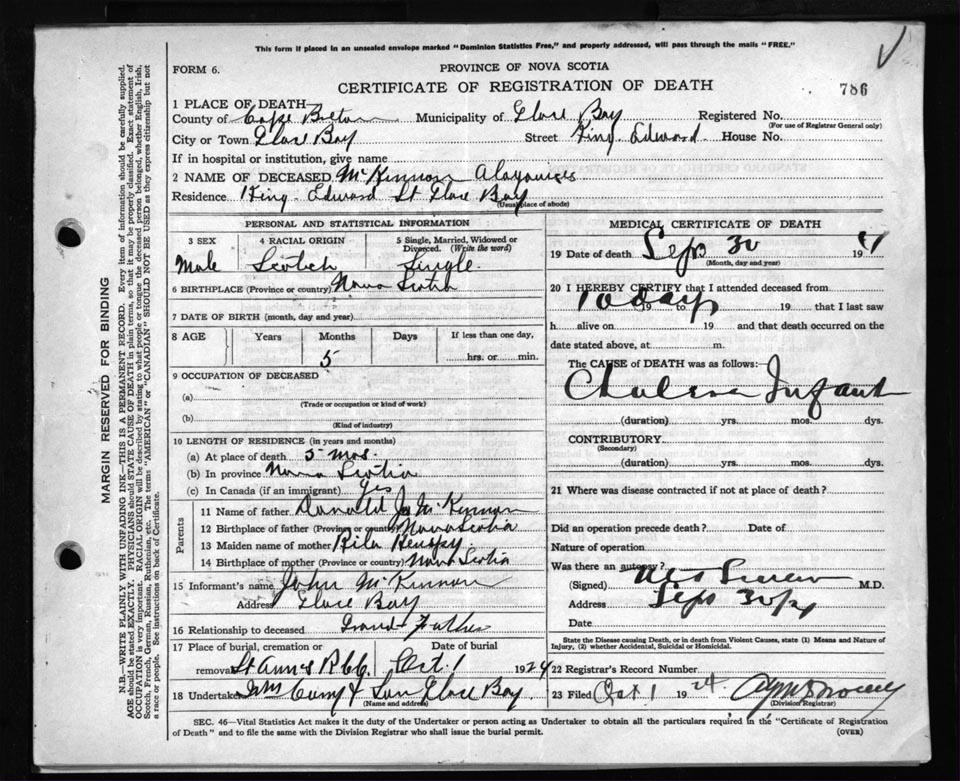 This form if placed in an unsealed envelope marked "Dominion Statistics Free," and properly addressed, will pass through the mails "FREE."
FORM 6.
PROVINCE OF NOVA SCOTIA
CERTIFICATE OF REGISTRATION OF DEATH
786
1 PLACE OF DEATH
County of Cape Breton Municipality of Glace Bay Registered No.
(For use of Registrar General only)
City or Town Glace Bay Street King Edward House No.
If in hospital or institution, give name
2 NAME OF DECEASED McKinnon
Residence King Edward St Glace Bay
(Usual place of abode)
PERSONAL AND STATISTICAL INFORMATION
3 SEX 4 RACIAL ORIGIN 5 Single, Married, Widowed or Divorced. (Write the word)
Male Scotch Single.
6 BIRTHPLACE (Province or country) Nova Scotia
7 DATE OF BIRTH (month, day and year)
8 AGE Years Months Days If less than one day,
5 hrs. or min.
9 OCCUPATION OF DECEASED
(a)
(Trade or occupation or kind of work)
(b)
(Kind of industry)
10 LENGTH OF RESIDENCE (in years and months)
(a) At place of death 5 mos.
(b) In province Nova Scotia
(c) In Canada (if an immigrant) Yes
Parents
11 Name of father Donald J. McKinnon
12 Birthplace of father (Province or country) Nova Scotia
13 Maiden name of mother
14 Birthplace of mother (Province or country) Nova Scotia
15 Informant's name John McKinnon
Address Glace Bay
16 Relationship to deceased Grand Father
17 Place of burial, cremation or removal St Anns Date of burial Oct 1 1924
18 Undertaker & Son Glace Bay.
(Name and address)
MEDICAL CERTIFICATE OF DEATH
19 Date of death Sep 30 19
(Month, day and year)
20 I HEREBY CERTIFY that I attended deceased from
10 days 19 to 19 that I last saw
h alive on 19 and that death occurred on the
date stated above, at m.
The CAUSE of DEATH was as follows:
Cholera Infant
(duration) yrs. mos. dys.
CONTRIBUTORY
(Secondary)
(duration) yrs. mos. dys.
21 Where was disease contracted if not at place of death?
Did an operation precede death? Date of
Nature of operation
Was there an autopsy?
(Signed) M.D.
Address Sep 30/24
Date
State the Disease causing Death, or in death from Violent Causes, state (1) Means and Nature of Injury, (2) whether Accidental, Suicidal or Homicidal.
22 Registrar's Record Number
23 Filed Oct 1 1924.
(Division Registrar)
SEC. 46—Vital Statistics Act makes it the duty of the Undertaker or person acting as Undertaker to obtain all the particulars required in the "Certificate of Registration
of Death" and to file the same with the Division Registrar who shall issue the burial permit.
(OVER)
MARGIN RESERVED FOR BINDING
N.B.—WRITE PLAINLY WITH UNFADING INK—THIS IS A PERMANENT RECORD. Every item of information should be carefully supplied.
AGE should be stated EXACTLY. PHYSICIANS should STATE CAUSE OF DEATH in plain terms, so that it may be properly classified. Exact statement of
OCCUPATION is very important. RACIAL ORIGIN will be described by stating to what people or tongue the deceased person belonged, whether English, Irish,
Scotch, French, German, Russian, Ruthenian, etc. The terms "AMERICAN" or "CANADIAN" SHOULD NOT BE USED as they express citizenship but not
a race or people. See instructions on back of Certificate.